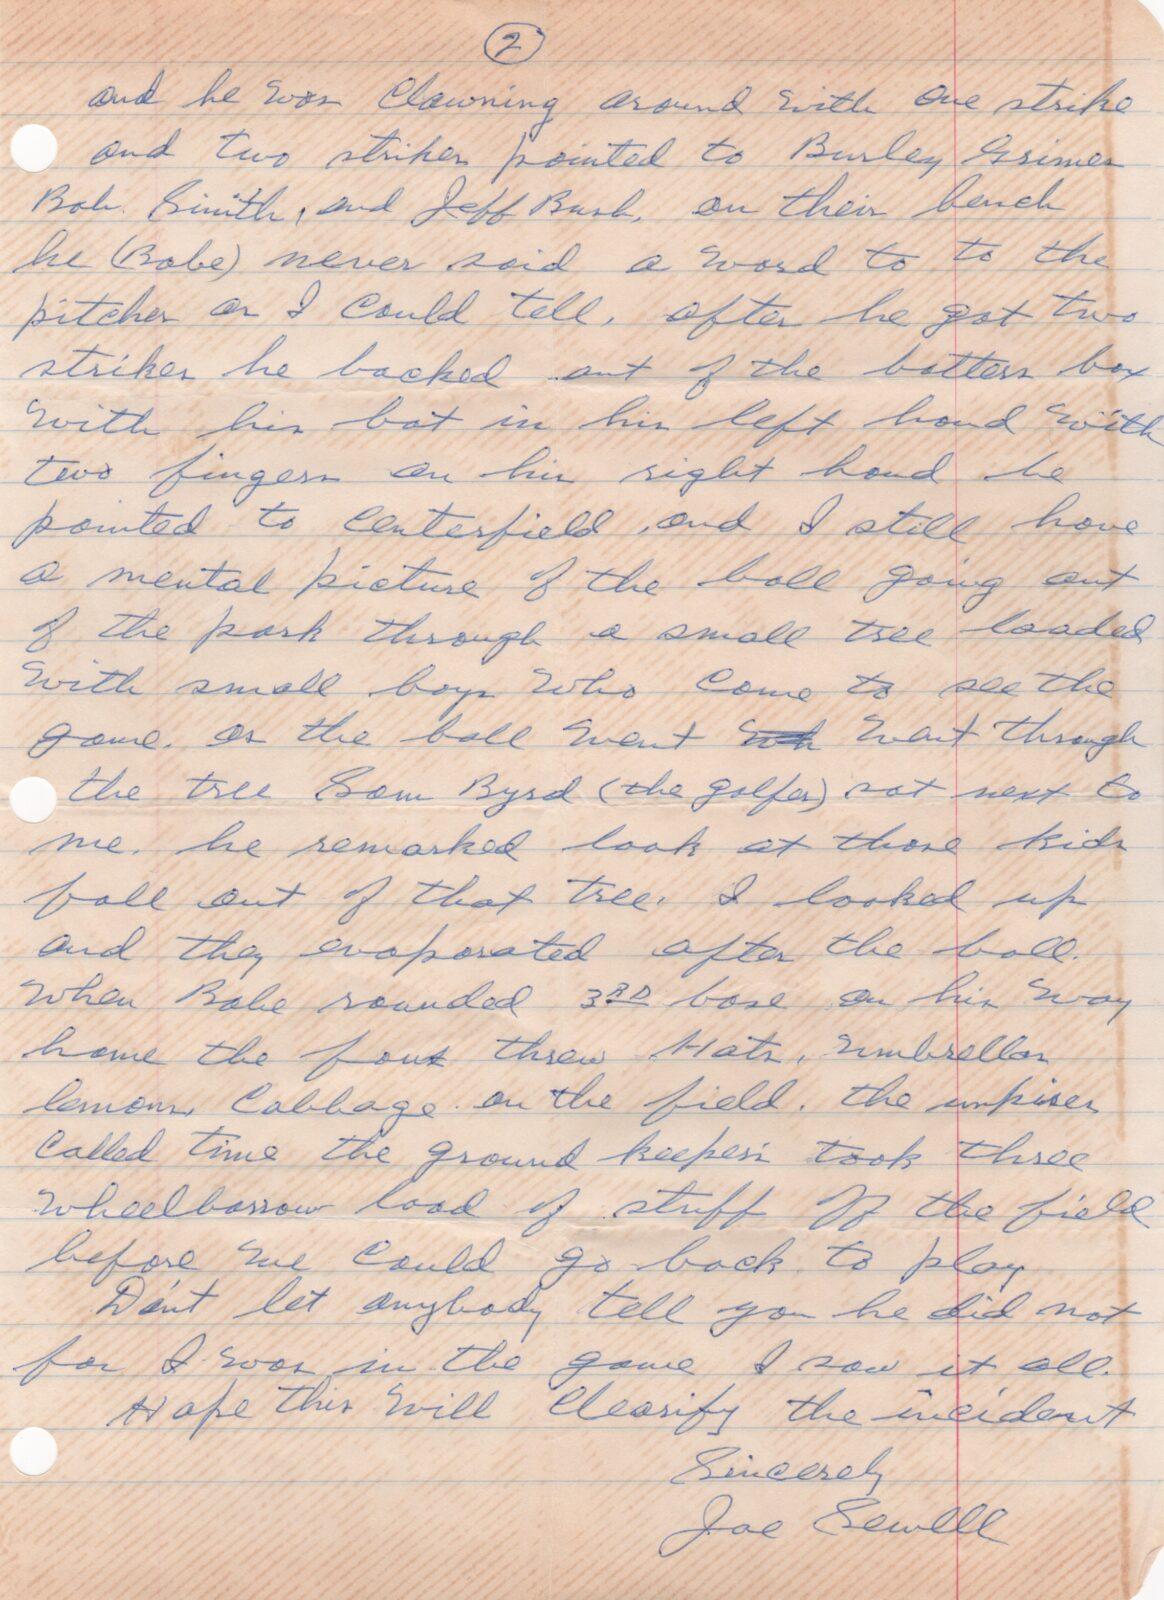 2
and he was Clowning around with one strike
and two strikes pointed to Burley Grimes
Bob. Smith, and Jeff Bush, on their bench
he (Babe) never said a word to to the
pitcher as I could tell, after he got two
strikes he backed out of the batters box
with his bat in his left hand with
two fingers on his right hand he
pointed to centerfield, and I still have
a mental picture of the ball going out
of the park through a small tree loaded
with small boys who come to see the
game. as the ball went went through
the tree Sam Byrd (the golfer) sat next to
me. he remarked look at those kids
fall out of that tree. I looked up
and they evaporated after the ball.
When Babe rounded 3RD base on his way
home the fans threw Hats, umbrellas
lemons, Cabbage on the field. the umpires
called time the ground keepers took three
wheelbarrow load of stuff off the field
before we could go back to play
Don't let anybody tell you he did not
for I was in the game I saw it all.
Hope this will Clearify the incident
Sincerely
Joe Sewell